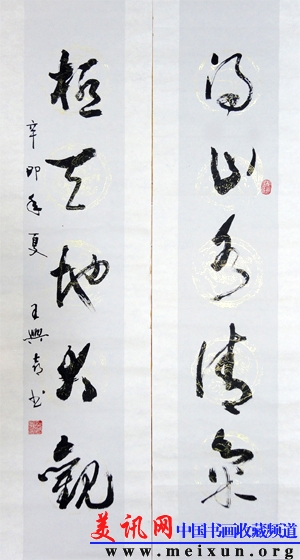 得山水清氣
極天地大觀
辛卯年夏 王興嘉书
美讯网 中国书画收藏频道
www.meixun.org